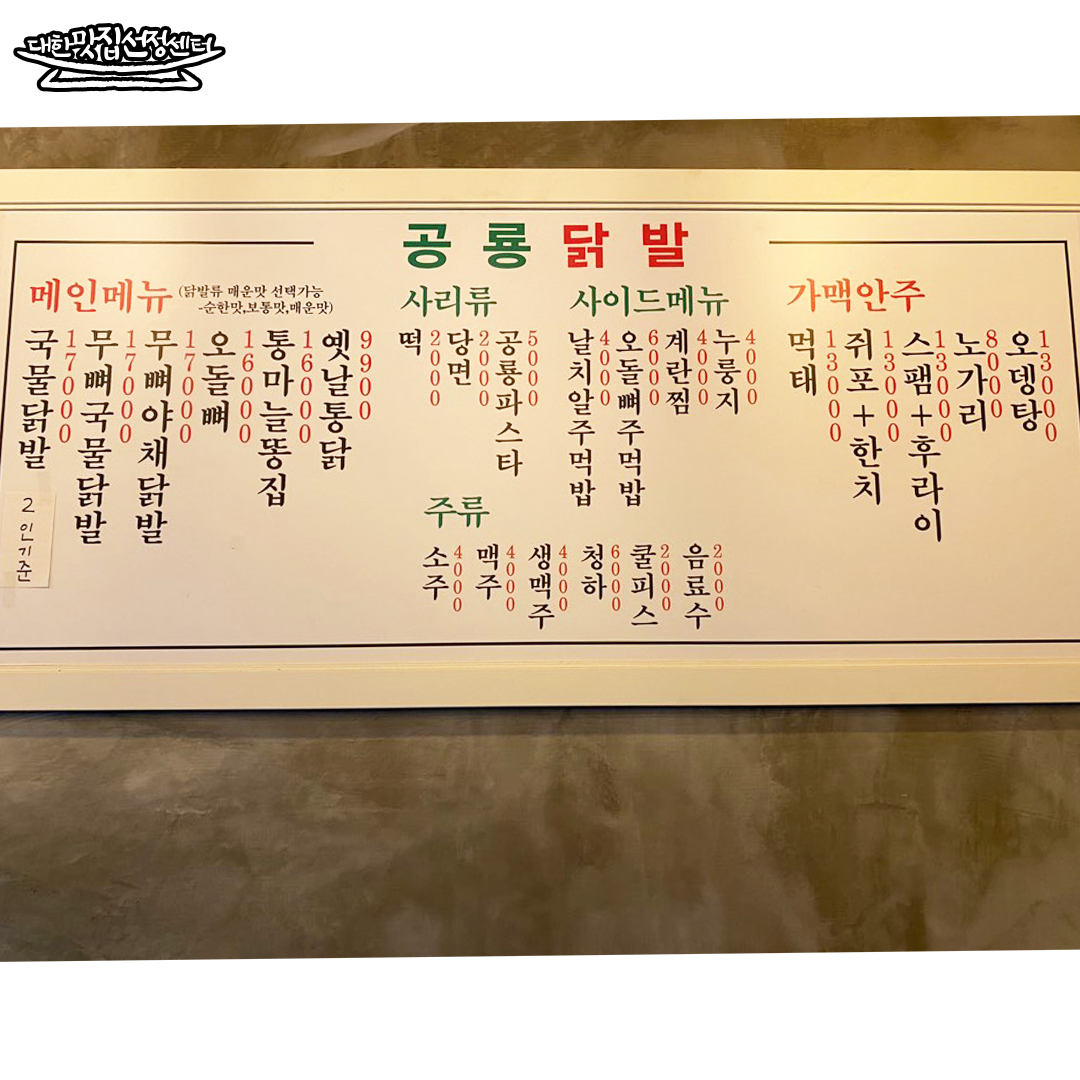 대한맛집선정센터
공룡닭발
메인메뉴 (닭발류 매운맛 선택가능
-순한맛,보통맛,매운맛)
국물닭발 17000
무뼈국물닭발 17000
무뼈야채닭발 17000
오돌뼈 16000
통마늘똥집 16000
옛날통닭 9900
2인기준
사리류
떡 2000
당면 2000
공룡파스타 5000
사이드메뉴
날치알주먹밥 4000
오돌뼈주먹밥 6000
계란찜 4000
누룽지 4000
주류
소주 4000
맥주 4000
생맥주 4000
청하 6000
쿨피스 2000
음료수 2000
가맥안주
먹태 13000
쥐포+한치 13000
스팸+후라이 13000
노가리 8000
오뎅탕 13000